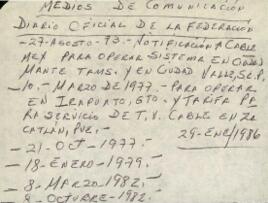 MEDIOS DE COMUNICACIÓN
DIARIO OFICIAL DE LA FEDERACIÓN
-27-AGOSTO-93.- NOTIFICACIÓN A CABLE
MEX PARA OPERAR SISTEMA EN CIUDAD
MANTE TAMS. Y EN CIUDAD VALLES, S.L.P.
-10.- MARZO DE 1977.- PARA OPERAR
EN IRAPUATO, GTO. Y TARIFA PA
RA SERVICIO DE T.V. CABLE EN ZA
CATLÁN, PUE.-
29-ENE/1986
-21-OCT-1977.-
-18-ENERO-1979.-
-8-MARZO-1982.-
8-OCTUBRE-1982.-